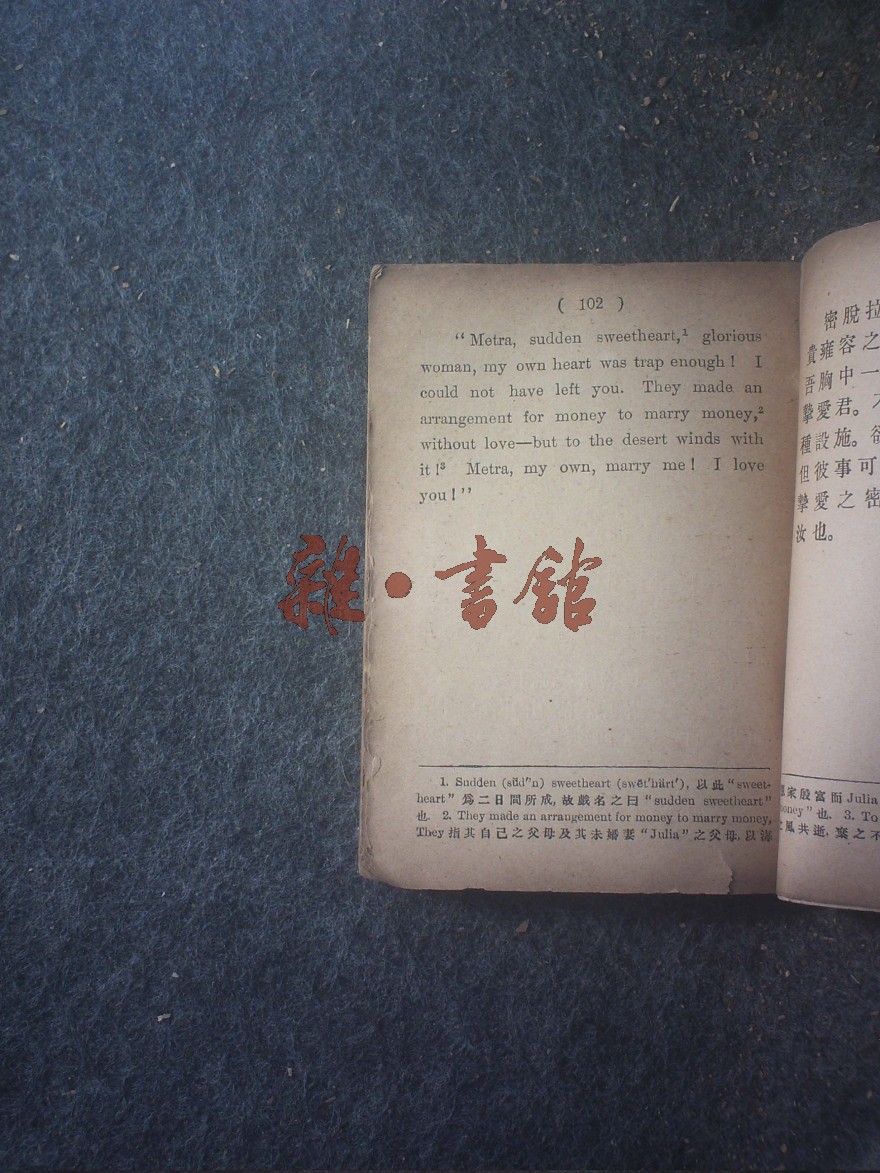 ( 102 )
“Metra, sudden sweetheart,¹ glorious
woman, my own heart was trap enough! I
could not have left you. They made an
arrangement for money to marry money,²
without love—but to the desert winds with
it!³ Metra, my own, marry me! I love
you!”
1. Sudden (sŭd′'n) sweetheart (swēt′härt′), 以此 “sweet-
heart” 爲二日間所成, 故戲名之曰 “sudden sweetheart”
也. 2. They made an arrangement for money to marry money,
They 指其自己之父母及其未婚妻 “Julia” 之父母, 以海
密脫拉
貴雍容之
吾胸中一
摯愛君。
種設施。欲
但彼事可
摯愛之密
汝也。
家殷富而 Julia
money” 也. 3. To
風共逝, 棄之不
雜·書館